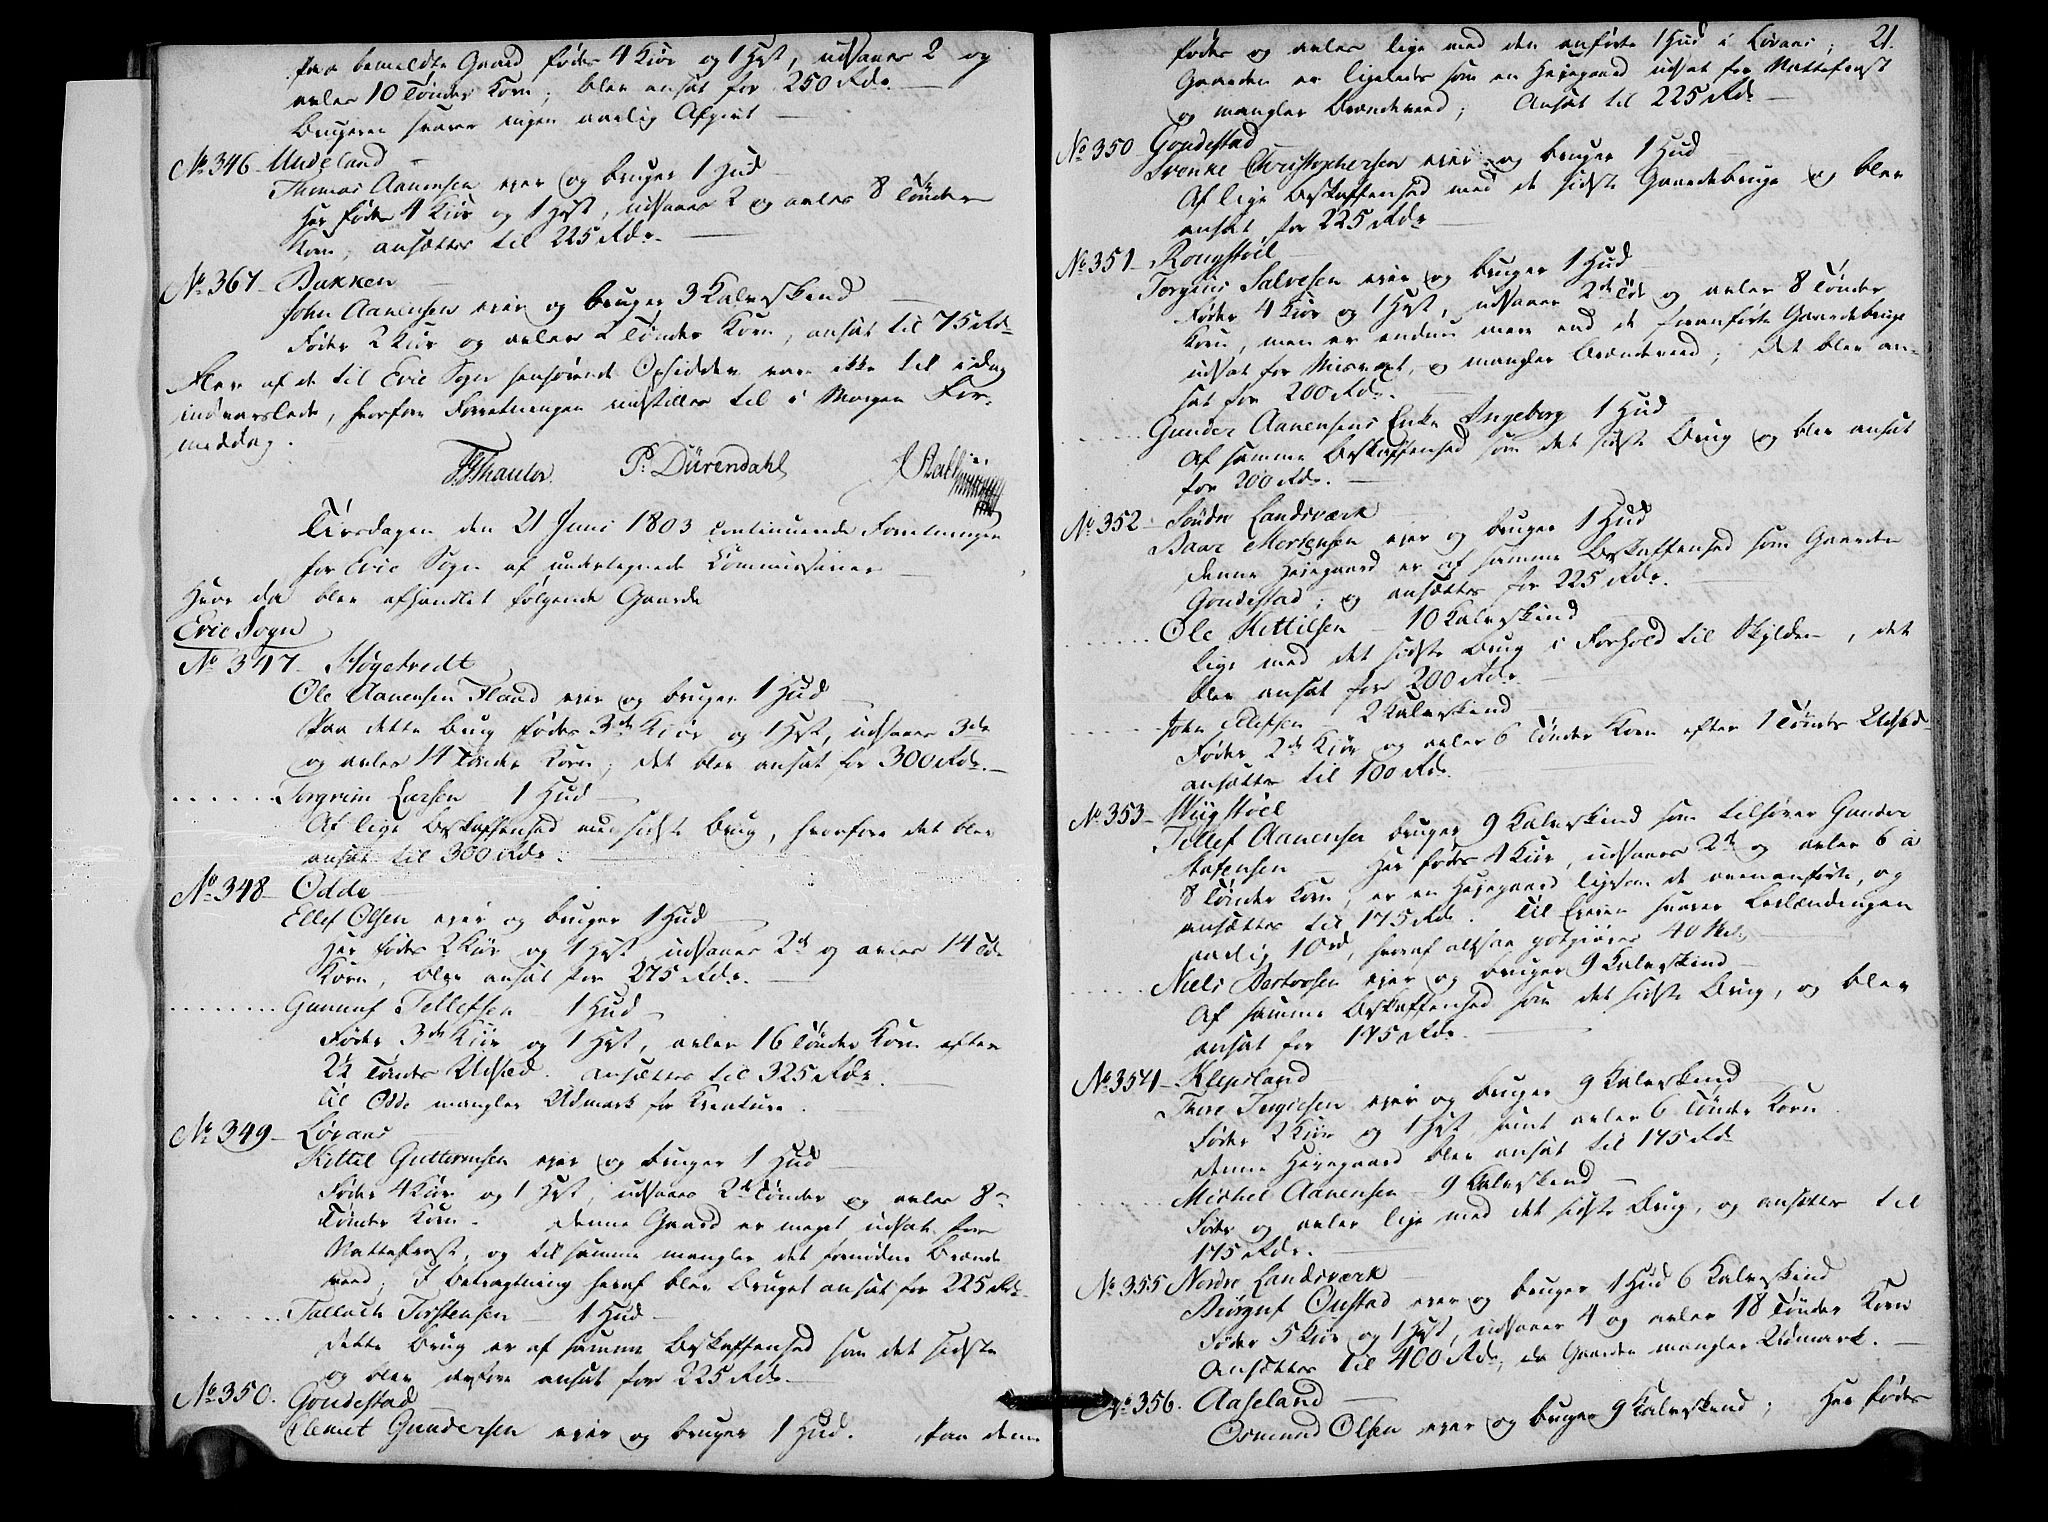 paa bemeldte Gaard fødes 4 Kiör og 1 Hest, udsaaes 2 og
avles 10 Tönder Korn; blev ansat for 250 Rdr. —
Brugeren svarer ingen aarlig Afgivt —
No 346 — Undeland —
Thomas Aanensen ejer og bruger 1 Hud
Her fødes 4 Kiör og 1 Hest, udsaaes 2 og avles 8 Tönder
Korn, ansættes til 225 Rdr. —
No 367 — Bakken —
John Aanensen ejer og bruger 3 Kalvskind —
Föder 2 Kiör og avler 2 Tönder Korn, ansat til 75 Rdr
Fler af de til Evie Sogn henhörende Opsiddere vare ikke til idag
indvarslede, hvorfore Forretningen udstilles til i Morgen For-
middag.
Thaulov. P: Dürendahl
Tirsdagen den 21 Juni 1803 continuerede Forretningen
for Evie Sogn af undertegnede Commissairer —
Hvor da blev afhandlet følgende Gaarde
Evie Sogn
No 347 — Høgetvedt
Ole Aanensen Flaad ejer og bruger 1 Hud —
Paa dette Brug fødes 3de Kiör og 1 Hest, udsaaes 3de
og avles 14 Tönder Korn; det blev ansat for 300 Rdr. —
. . . . . . Torgrim Larsen 1 Hud —
Af lige Beskaffenhed med sidste Brug, hvorfore det blev
ansat til 300 Rdr. —
No 348 — Odde —
Ellef Olsen ejer og bruger 1 Hud —
Her fødes 2 Kiör og 1 Hest, udsaaes 2de og avles 14 Tdr
Korn, blev ansat for 275 Rdr. —
. . . . . . Gunnuf Tellefsen — 1 Hud —
Föder 3de Kiör og 1 Hest, avler 16 Tönder Korn efter
2½ Tönders Udsæd. Ansættes til 325 Rdr. —
Til Odde mangler Udmark for Kreature. —
No 349 — Løvaas —
Kittil Guttormsen ejer og bruger 1 Hud —
Föder 4 Kiör og 1 Hest, udsaaes 2de Tönder og avles 8
Tönder Korn. Denne Gaard er meget udsat for
Nattefrost, og tilsamme mangler det fornödne Brænde
veed; I Betragtning heraf blev Bruget ansat for 225 Rdr.
. . . . . . Tallach Torstensen — 1 Hud —
Dette Brug er af samme Beskaffenhed som det sidste
og blev derfore ansat for 225 Rdr. —
No 350. Gondestad
Clemet Gundersen ejer og bruger 1 Hud. Paa denne
21.
födes og avles lige med den anførte 1 Hud i Løvaas;
Gaarden er ligeledes som en Hejegaard udsat for Nattefrost
og mangler Brændeveed; Ansat til 225 Rdr —
No 350 Gondestad —
Svenke Christophersen ejer og bruger 1 Hud
Af lige Beskaffenhed med de sidste Gaardebruge og blev
ansat for 225 Rdr —
No 351 — Rougstöel —
Torgius Salvesen ejer og bruger 1 Hud
Föder 4 Kiör og 1 Hest, udsaaer 2de Tdr og avler 8 Tönder
Korn, men er endnu mere end de foranførte Gaardebruge
udsat for Misvæxt, og mangler Brændeveed; Det blev an-
sat for 200 Rdr. —
. . . . . . Gunder Aanensens Enke Ingeborg 1 Hud
Af samme Beskaffenhed som det sidste Brug og blev ansat
for 200 Rdr. —
No 352 — Söndre Landsværk —
Baar Mortensen ejer og bruger 1 Hud
Denne Hejegaard er af samme Beskaffenhed som Gaarden
Gondestad; og ansættes for 225 Rdr. —
. . . . . . Ole Kittilsen — 10 Kalvskind
lige med det sidste Brug i Forhold til Skylden, det
blev ansat for 200 Rdr —
. . . . . . John Ellefsen 2 Kalvskind —
Föder 2de Kiör og avler 6 Tönder Korn efter 1 Tönde Udsæd
ansættes til 100 Rdr. —
No 353 — Wiigstöel
Tellef Aanensen bruger 9 Kalvskind som tilhörer Gunder
Stefensen — Her fødes 4 Kiör, udsaaes 2de og avles 6 à
8 Tönder Korn, er en Hejegaard ligesom de ovenanførte, og
ansættes til 175 Rdr. Til Ejeren svarer Leilændingen
aarlig 10 ort, heraf altsaa godtgiöres 40 Rdr. —
. . . . . . Niels Bertorsen ejer og bruger 9 Kalvskind —
Af samme Beskaffenhed som det sidste Brug, og blev
ansat for 175 Rdr. —
No 354 — Klepsland —
Thore Tergiesen ejer og bruger 9 Kalvskind —
Föder 2 Kiör og 1 Hest, samt avler 6 Tönder Korn
Denne Hejegaard blev ansat til 175 Rdr
. . . . . . Michel Aanensen — 9 Kalvskind —
Föder og avler lige med det sidste Brug, og ansættes til
175 Rdr. —
No 355 Nordre Landsværk —
Biörguf Ougstad ejer og bruger 1 Hud 6 Kalvskind
Föder 5 Kiör og 1 Hest, udsaaer 4 og avler 18 Tönder Korn
Ansættes til 400 Rdr, da Gaarden mangler Udmark. —
No 356. Aaseland —
Osmund Olsen ejer og bruger 9 Kalvskind; Her födes